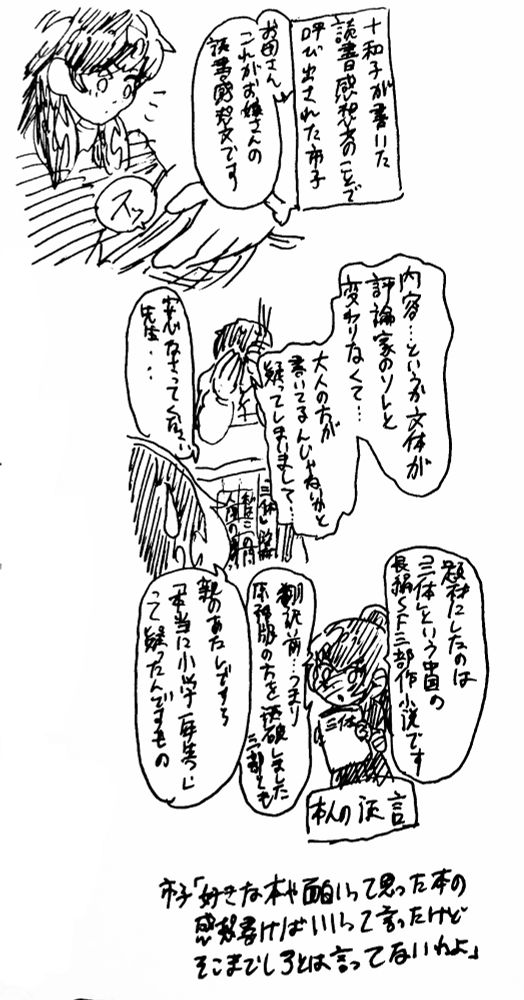 十和子が書いた
読書感想文のことで
呼び出された市子
お母さん
これがお嬢さんの
読書感想文です
スッ
内容…というか文体が
評論家のソレと
変わりなくて…
大人の方が
書いてるんじゃないかと
疑ってしまいまして…
安心なさってください
先生…
「三体」
題材にしたのは
「三体」という中国の
長編SF三部作小説です
翻訳前…つまり
本国版の方を読破しました
三部とも
三体
本人の証言
親のあたしですら
「本当に小学一年生?」
って疑ったんですもの
市子「好きな本や面白いって思った本の
感想書けばいいって言ったけど
そこまでしろとは言ってないわよ」